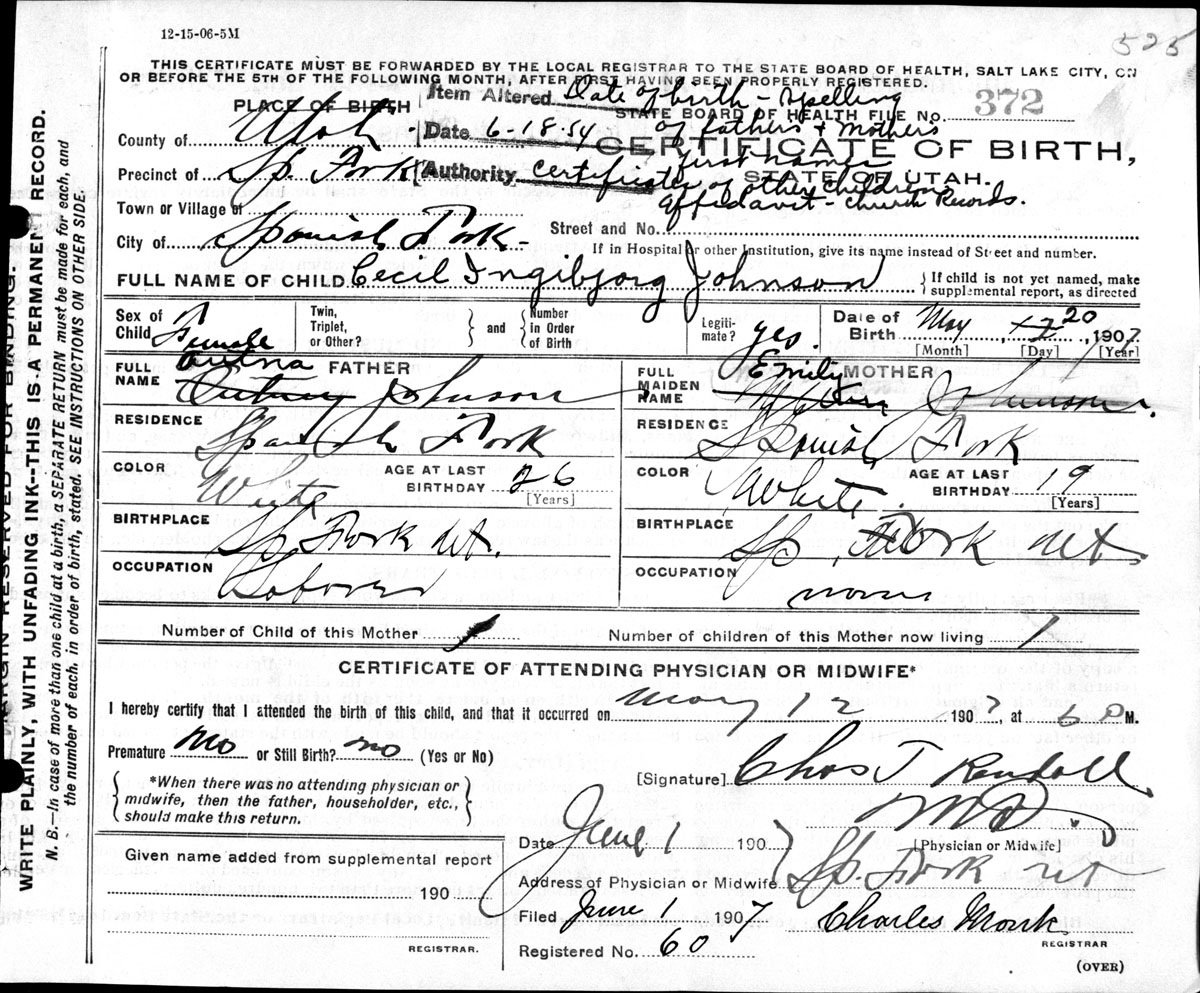 12-15-06-5M
525
THIS CERTIFICATE MUST BE FORWARDED BY THE LOCAL REGISTRAR TO THE STATE BOARD OF HEALTH, SALT LAKE CITY, ON
OR BEFORE THE 5TH OF THE FOLLOWING MONTH, AFTER FIRST HAVING BEEN PROPERLY REGISTERED.
PLACE OF BIRTH
Item Altered Date of birth - Spelling
STATE BOARD OF HEALTH FILE No. 372
of fathers + Mothers
County of Utah
Date 6-18-54
first names
CERTIFICATE OF BIRTH,
Precinct of Sp. Fork
Authority Certificates of other children
STATE OF UTAH.
affidavit - Church Records.
Town or Village of
Street and No.
City of Spanish Fork
If in Hospital or other Institution, give its name instead of Street and number.
FULL NAME OF CHILD Cecil Ingibjorg Johnson
{ If child is not yet named, make supplemental report, as directed
Sex of Child Female
Twin, Triplet, or Other?
and
Number in Order of Birth
Legitimate? yes.
Date of Birth May 20, 1907
[Month] [Day] [Year]
FULL NAME FATHER
Johnson
FULL MAIDEN NAME MOTHER
Emily Johnson.
RESIDENCE Spanish Fork
RESIDENCE Spanish Fork
COLOR White
AGE AT LAST BIRTHDAY 26 [Years]
COLOR White
AGE AT LAST BIRTHDAY 19 [Years]
BIRTHPLACE Sp. Fork Ut.
BIRTHPLACE Sp. Fork Ut
OCCUPATION Laborer
OCCUPATION none
Number of Child of this Mother 1
Number of children of this Mother now living 1
CERTIFICATE OF ATTENDING PHYSICIAN OR MIDWIFE*
I hereby certify that I attended the birth of this child, and that it occurred on May 12 1907, at 6 P M.
Premature No or Still Birth? no (Yes or No)
{ *When there was no attending physician or midwife, then the father, householder, etc., should make this return. }
[Signature] Chas J Rendall
M D
[Physician or Midwife]
Date June 1 190
Given name added from supplemental report
190
Address of Physician or Midwife Sp. Fork Ut
Filed June 1 1907
Charles Monk
REGISTRAR.
REGISTRAR
Registered No. 60
(OVER)
MARGIN RESERVED FOR BINDING.
WRITE PLAINLY, WITH UNFADING INK--THIS IS A PERMANENT RECORD.
N. B.—In case of more than one child at a birth, a SEPARATE RETURN must be made for each, and
the number of each, in order of birth, stated. SEE INSTRUCTIONS ON OTHER SIDE.